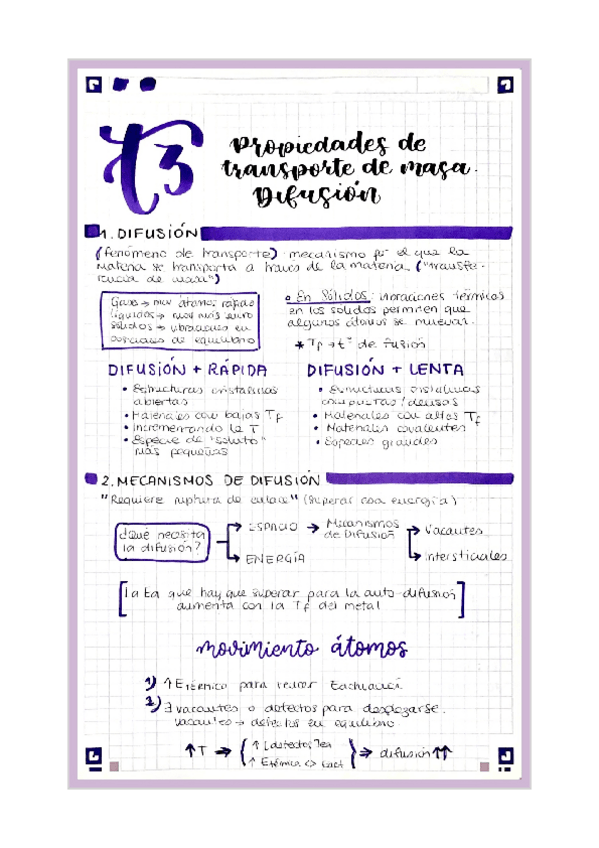 T3
Propiedades de
transporte de masa.
Difusión
1. DIFUSIÓN
(fenómeno de transporte) mecanismo por el que la
materia se transporta a través de la materia ("transfe-
rencia de masa")
Gases → mov átomos rápido
líquidos → mov más lento
sólidos → vibraciones en
posiciones de equilibrio
• En sólidos: vibraciones térmicas
en los sólidos permiten que
algunos átomos se muevan.
* Tf → tª de fusión
DIFUSIÓN + RÁPIDA
• Estructuras cristalinas
abiertas
• Materiales con bajas Tf
• Incrementando la T
• Especie de "soluto"
más pequeñas
DIFUSIÓN + LENTA
• Estructuras cristalinas
compactas/densas
• Materiales con altas Tf
• Materiales covalentes
• Especies grandes
2. MECANISMOS DE DIFUSIÓN
"Requiere ruptura de enlace" (superar cos energía)
¿Qué necesita
la difusión?
ESPACIO → Mecanismos
de Difusión
Vacantes
Intersticiales
ENERGÍA
[la Ea que hay que superar para la auto-difusión
aumenta con la Tf del metal]
movimiento átomos
1) ↑ Etérmico para vencer Eactivaci
2) ∃ vacantes o defectos para desplazarse.
vacantes → defectos en equilibrio
↑T → { ↑ [defectos]
↑ Etérmica <> Eact } ⇒ difusión ↑↑